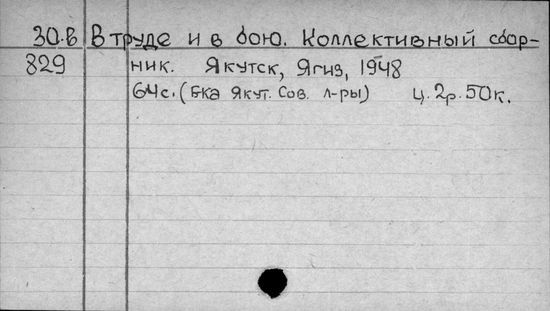 30.в В труде и в бою. Коллективный сбор-
829 ник. Якутск, Ягиз, 1948
64с. (Б-ка Якут. Сов. л-ры) ц. 2р. 50к.